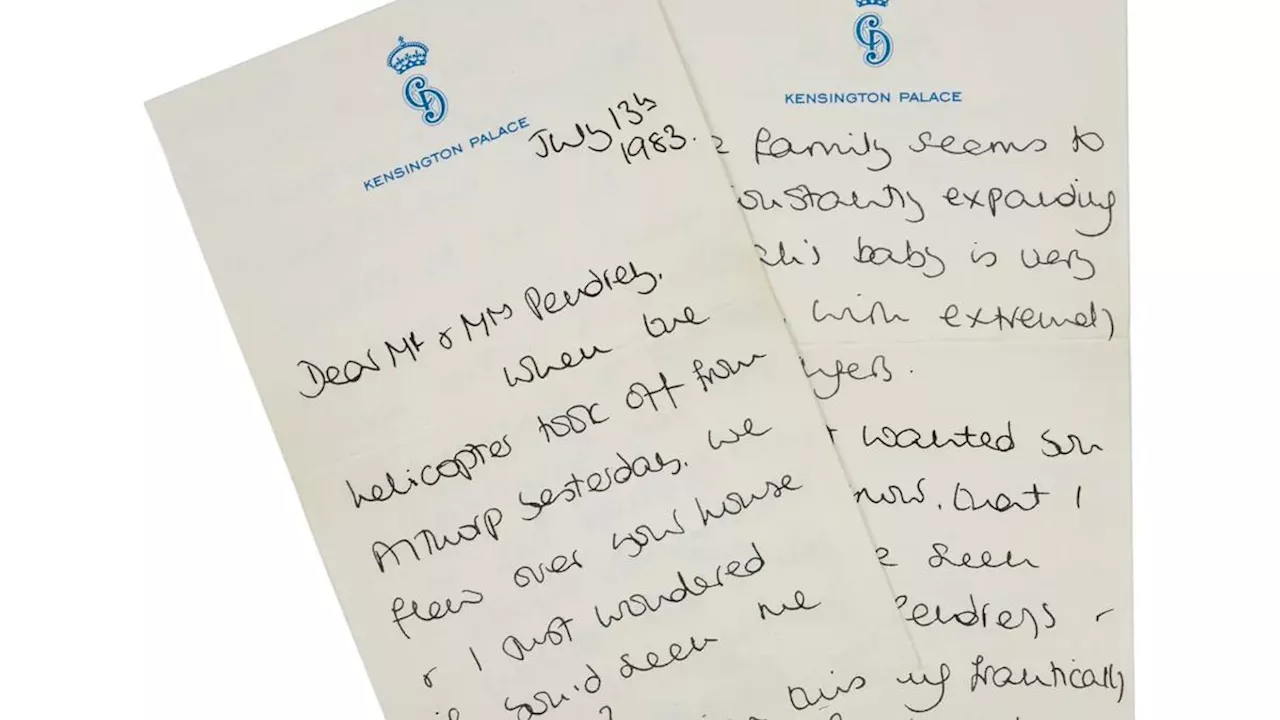 KENSINGTON PALACE
July 13th
1983.
Dear Mr & Mrs Pendrey.
When our
helicopter took off from
Althorp yesterday, we
flew over your house
& I just wondered
if you'd seen me
KENSINGTON PALACE
family seems to
constantly expanding
baby is very
with extremely
wanted you
know, that I
seen
Pendreys -
this up frantically